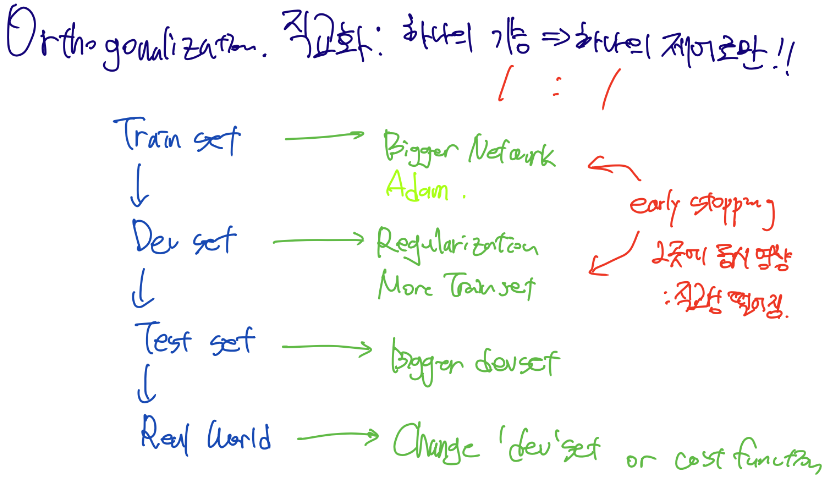 Orthogonalization. 직교화: 하나의 기능 ⇒ 하나의 제어로만!!
1 : 1
Train set → Bigger Network
Adam.
early stopping
Dev set → Regularization
2곳에 동시 영향
More Train set
: 직교성 떨어짐.
Test set → Bigger devset
Real World → Change 'dev' set or cost function